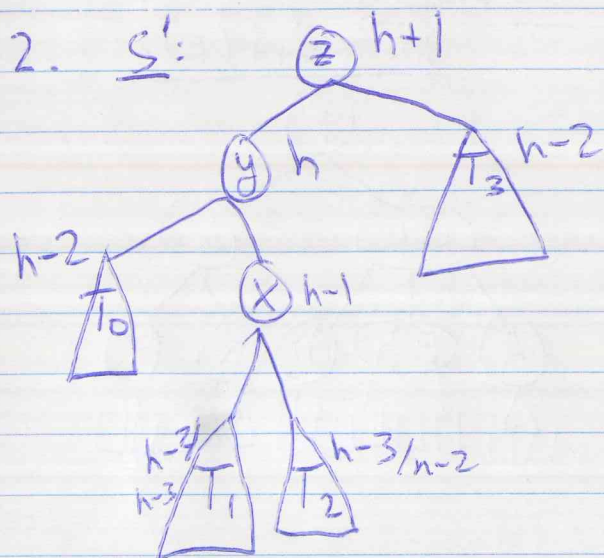 2. S':
z h+1
y h
T3 h-2
h-2
T0
x h-1
h-2/
h-3
T1
h-3/h-2
T2